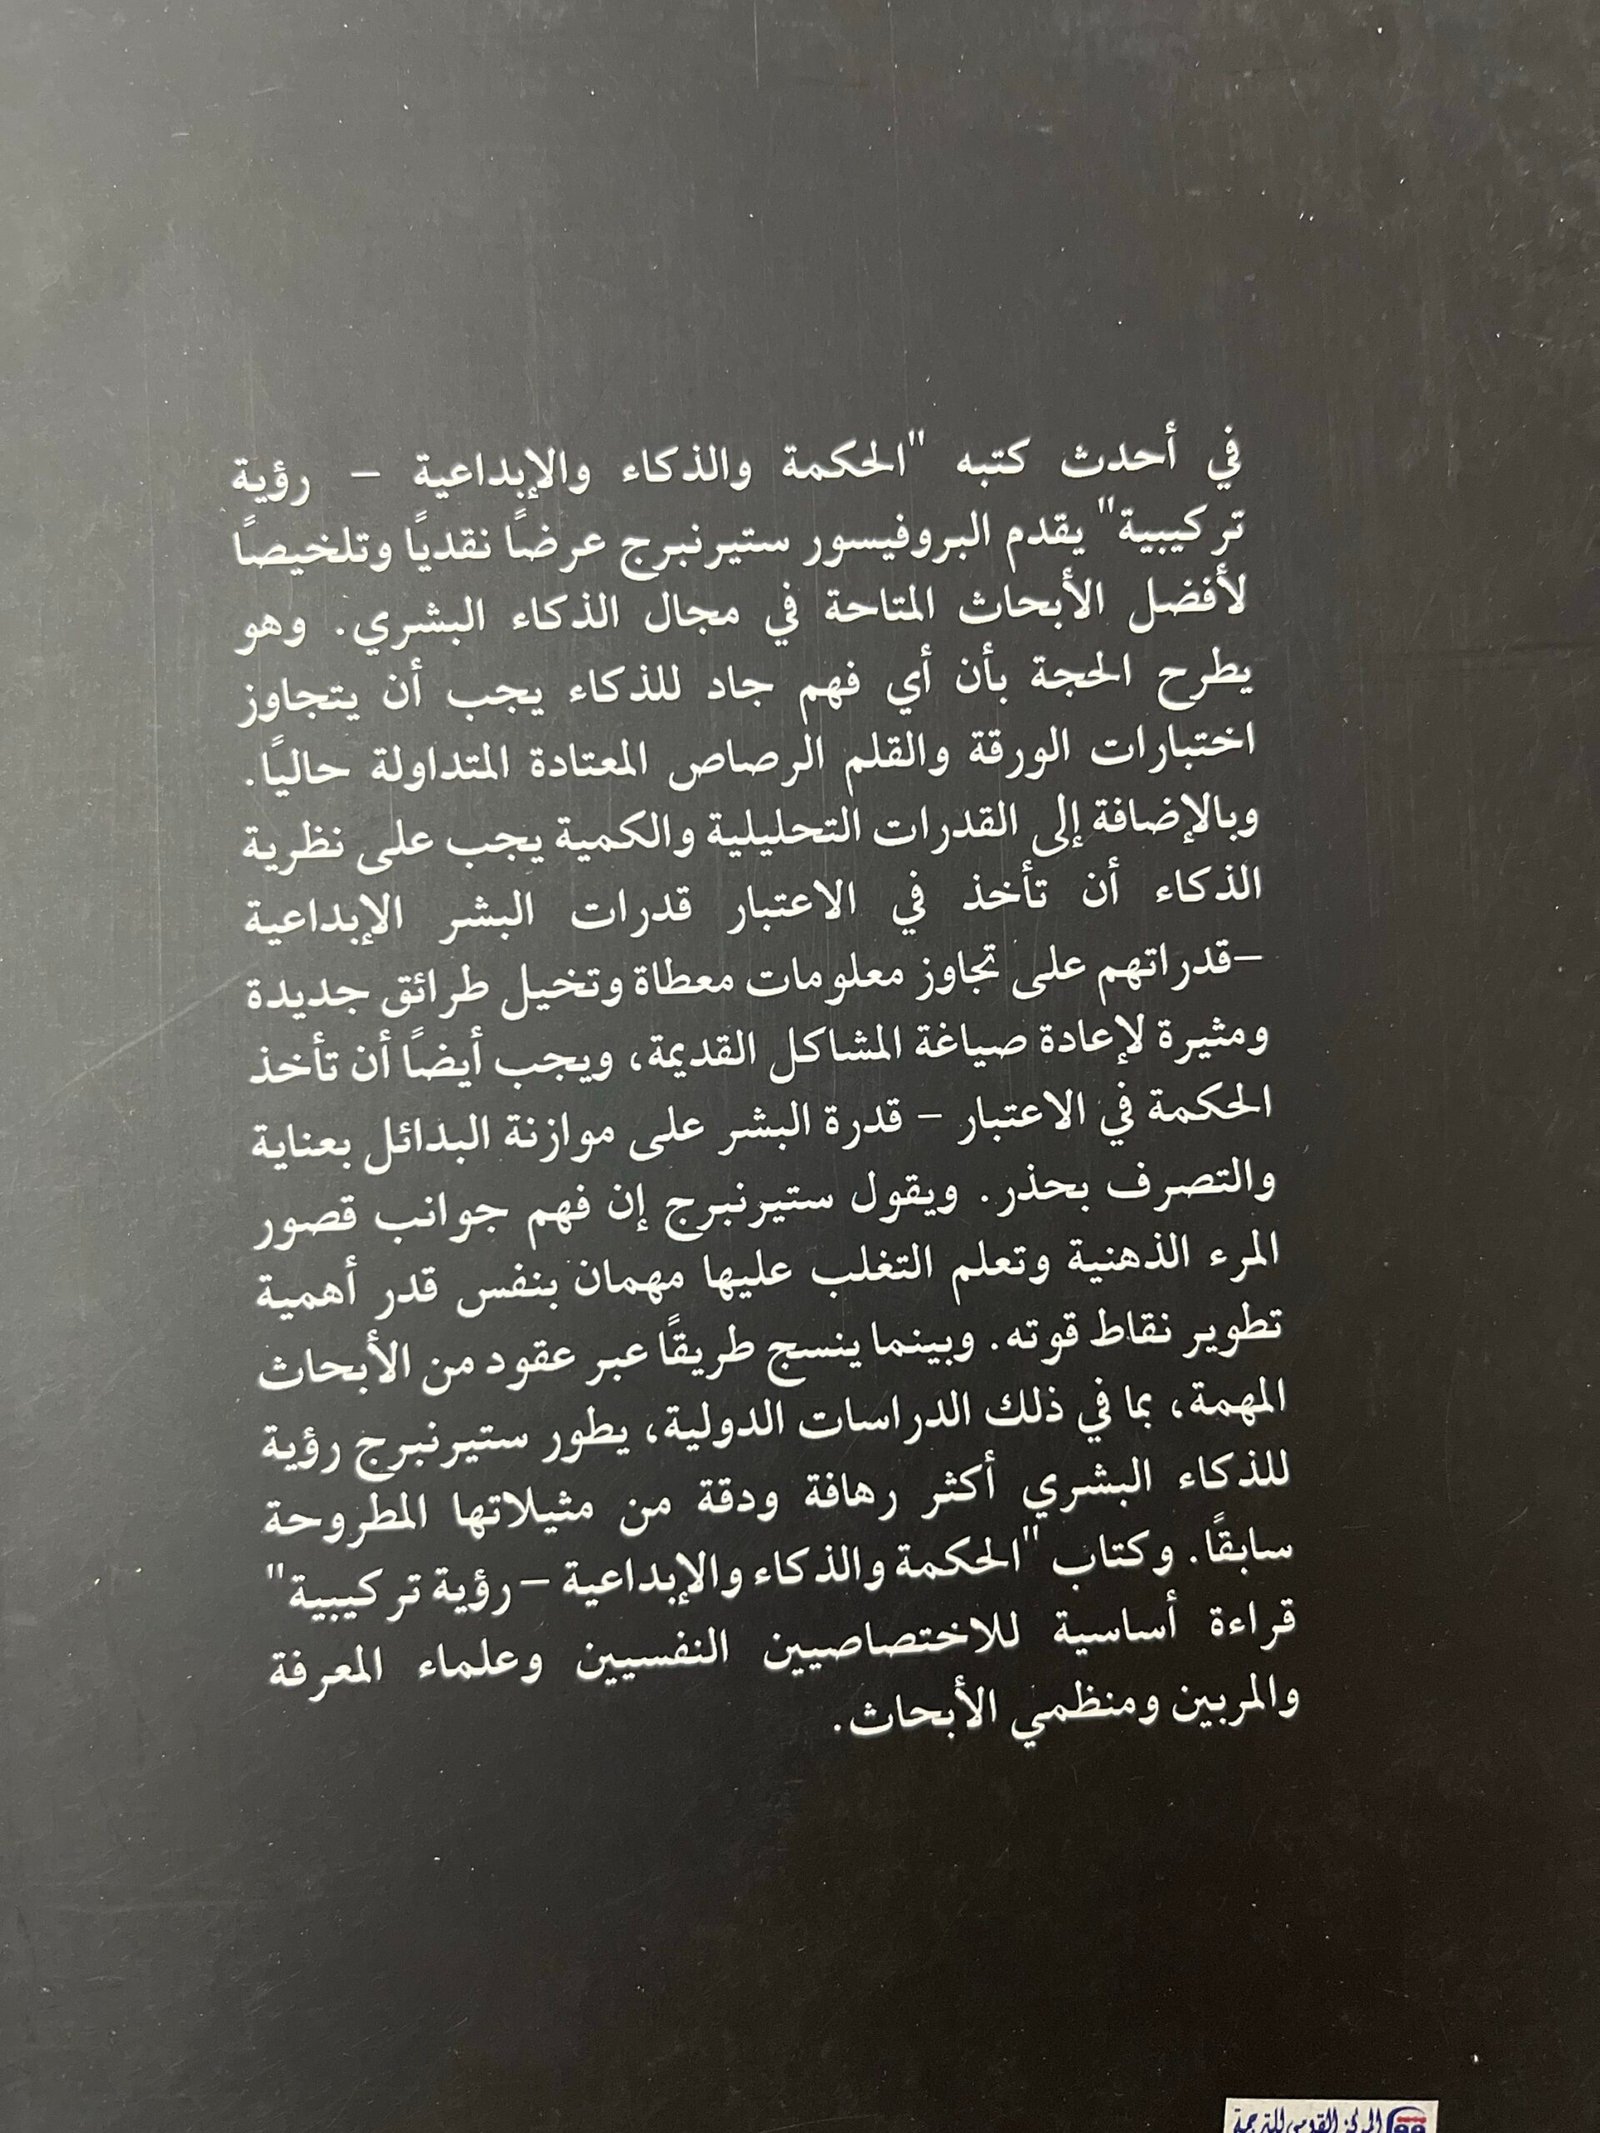 في أحدث كتبه "الحكمة والذكاء والإبداعية – رؤية
تركيبية" يقدم البروفيسور ستيرنبرج عرضًا نقديًا وتلخيصًا
لأفضل الأبحاث المتاحة في مجال الذكاء البشري. وهو
يطرح الحجة بأن أي فهم جاد للذكاء يجب أن يتجاوز
اختبارات الورقة والقلم الرصاص المعتادة المتداولة حاليًا.
وبالإضافة إلى القدرات التحليلية والكمية يجب على نظرية
الذكاء أن تأخذ في الاعتبار قدرات البشر الإبداعية
–قدراتهم على تجاوز معلومات معطاة وتخيل طرائق جديدة
ومثيرة لإعادة صياغة المشاكل القديمة، ويجب أيضًا أن تأخذ
الحكمة في الاعتبار – قدرة البشر على موازنة البدائل بعناية
والتصرف بحذر. ويقول ستيرنبرج إن فهم جوانب قصور
المرء الذهنية وتعلم التغلب عليها مهمان بنفس قدر أهمية
تطوير نقاط قوته. وبينما ينسج طريقًا عبر عقود من الأبحاث
المهمة، بما في ذلك الدراسات الدولية، يطور ستيرنبرج رؤية
للذكاء البشري أكثر رهافة ودقة من مثيلاتها المطروحة
سابقًا. وكتاب "الحكمة والذكاء والإبداعية – رؤية تركيبية"
قراءة أساسية للاختصاصيين النفسيين وعلماء المعرفة
والمربين ومنظمي الأبحاث.
المركز القومي للترجمة